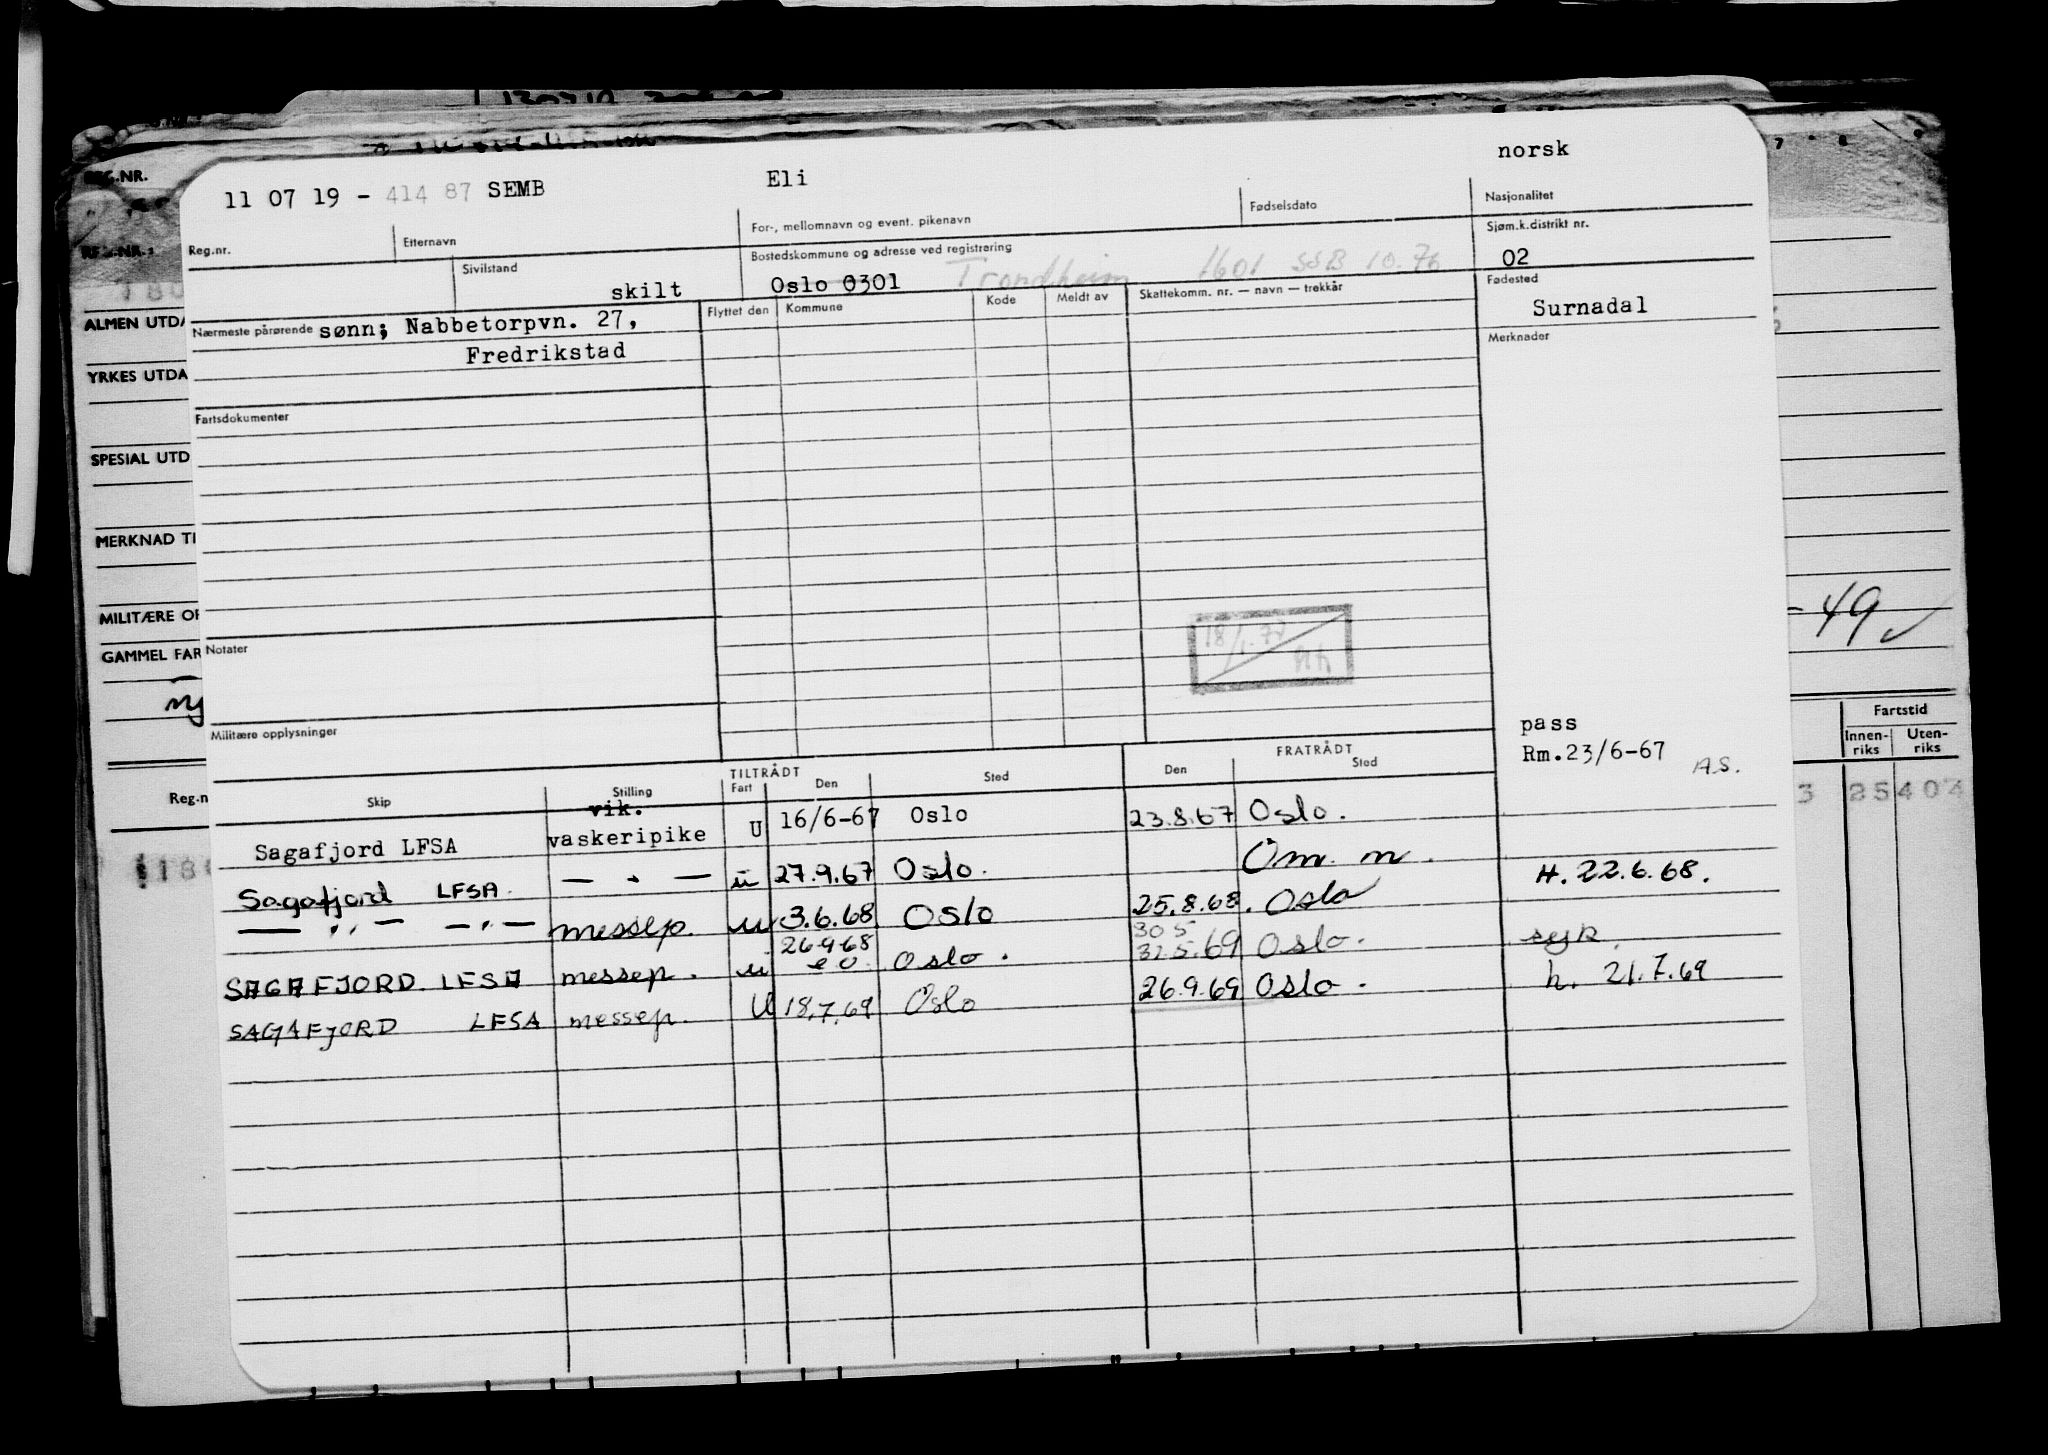 REG.NR.
REG.NR.:
ALMEN UTDA
YRKES UTDA
SPESIAL UTD
MERKNAD TI
MILITÆRE OP
GAMMEL FAR
Reg.n
norsk
11 07 19 - 414 87 SEMB Eli
Reg.nr. Etternavn For-, mellomnavn og event. pikenavn Fødselsdato Nasjonalitet
Sivilstand Bostedskommune og adresse ved registrering Sjøm.k.distrikt nr.
skilt Oslo 0301 Trondheim 1601 SSB 10.76 02
Nærmeste pårørende sønn; Nabbetorpvn. 27, Flyttet den Kommune Kode Meldt av Skattekomm. nr. — navn — trekkår Fødested
Fredrikstad Surnadal
Merknader
Fartsdokumenter
18/1.77
Notater
- 49 ✓
Militære opplysninger
pass
Rm.23/6-67 A.S.
Fartstid
Innen-riks Uten-riks
TILTRÅDT FRATRÅDT
Skip Stilling Fart Den Sted Den Sted
Sagafjord LFSA vik. vaskeripike U 16/6-67 Oslo 23.8.67 Oslo.
3 25 404
Sagafjord LFSA. — " — u 27.9.67 Oslo. Om. m.
— " — — " — messep. u 3.6.68 Oslo 25.8.68. Oslo H. 22.6.68.
SAGAFJORD. LFSA messep. u 26.9.68 Oslo. 30 5 31.5.69 Oslo. syk.
SAGAFJORD LFSA messep. U 18.7.69 Oslo 26.9.69 Oslo. h. 21.7.69